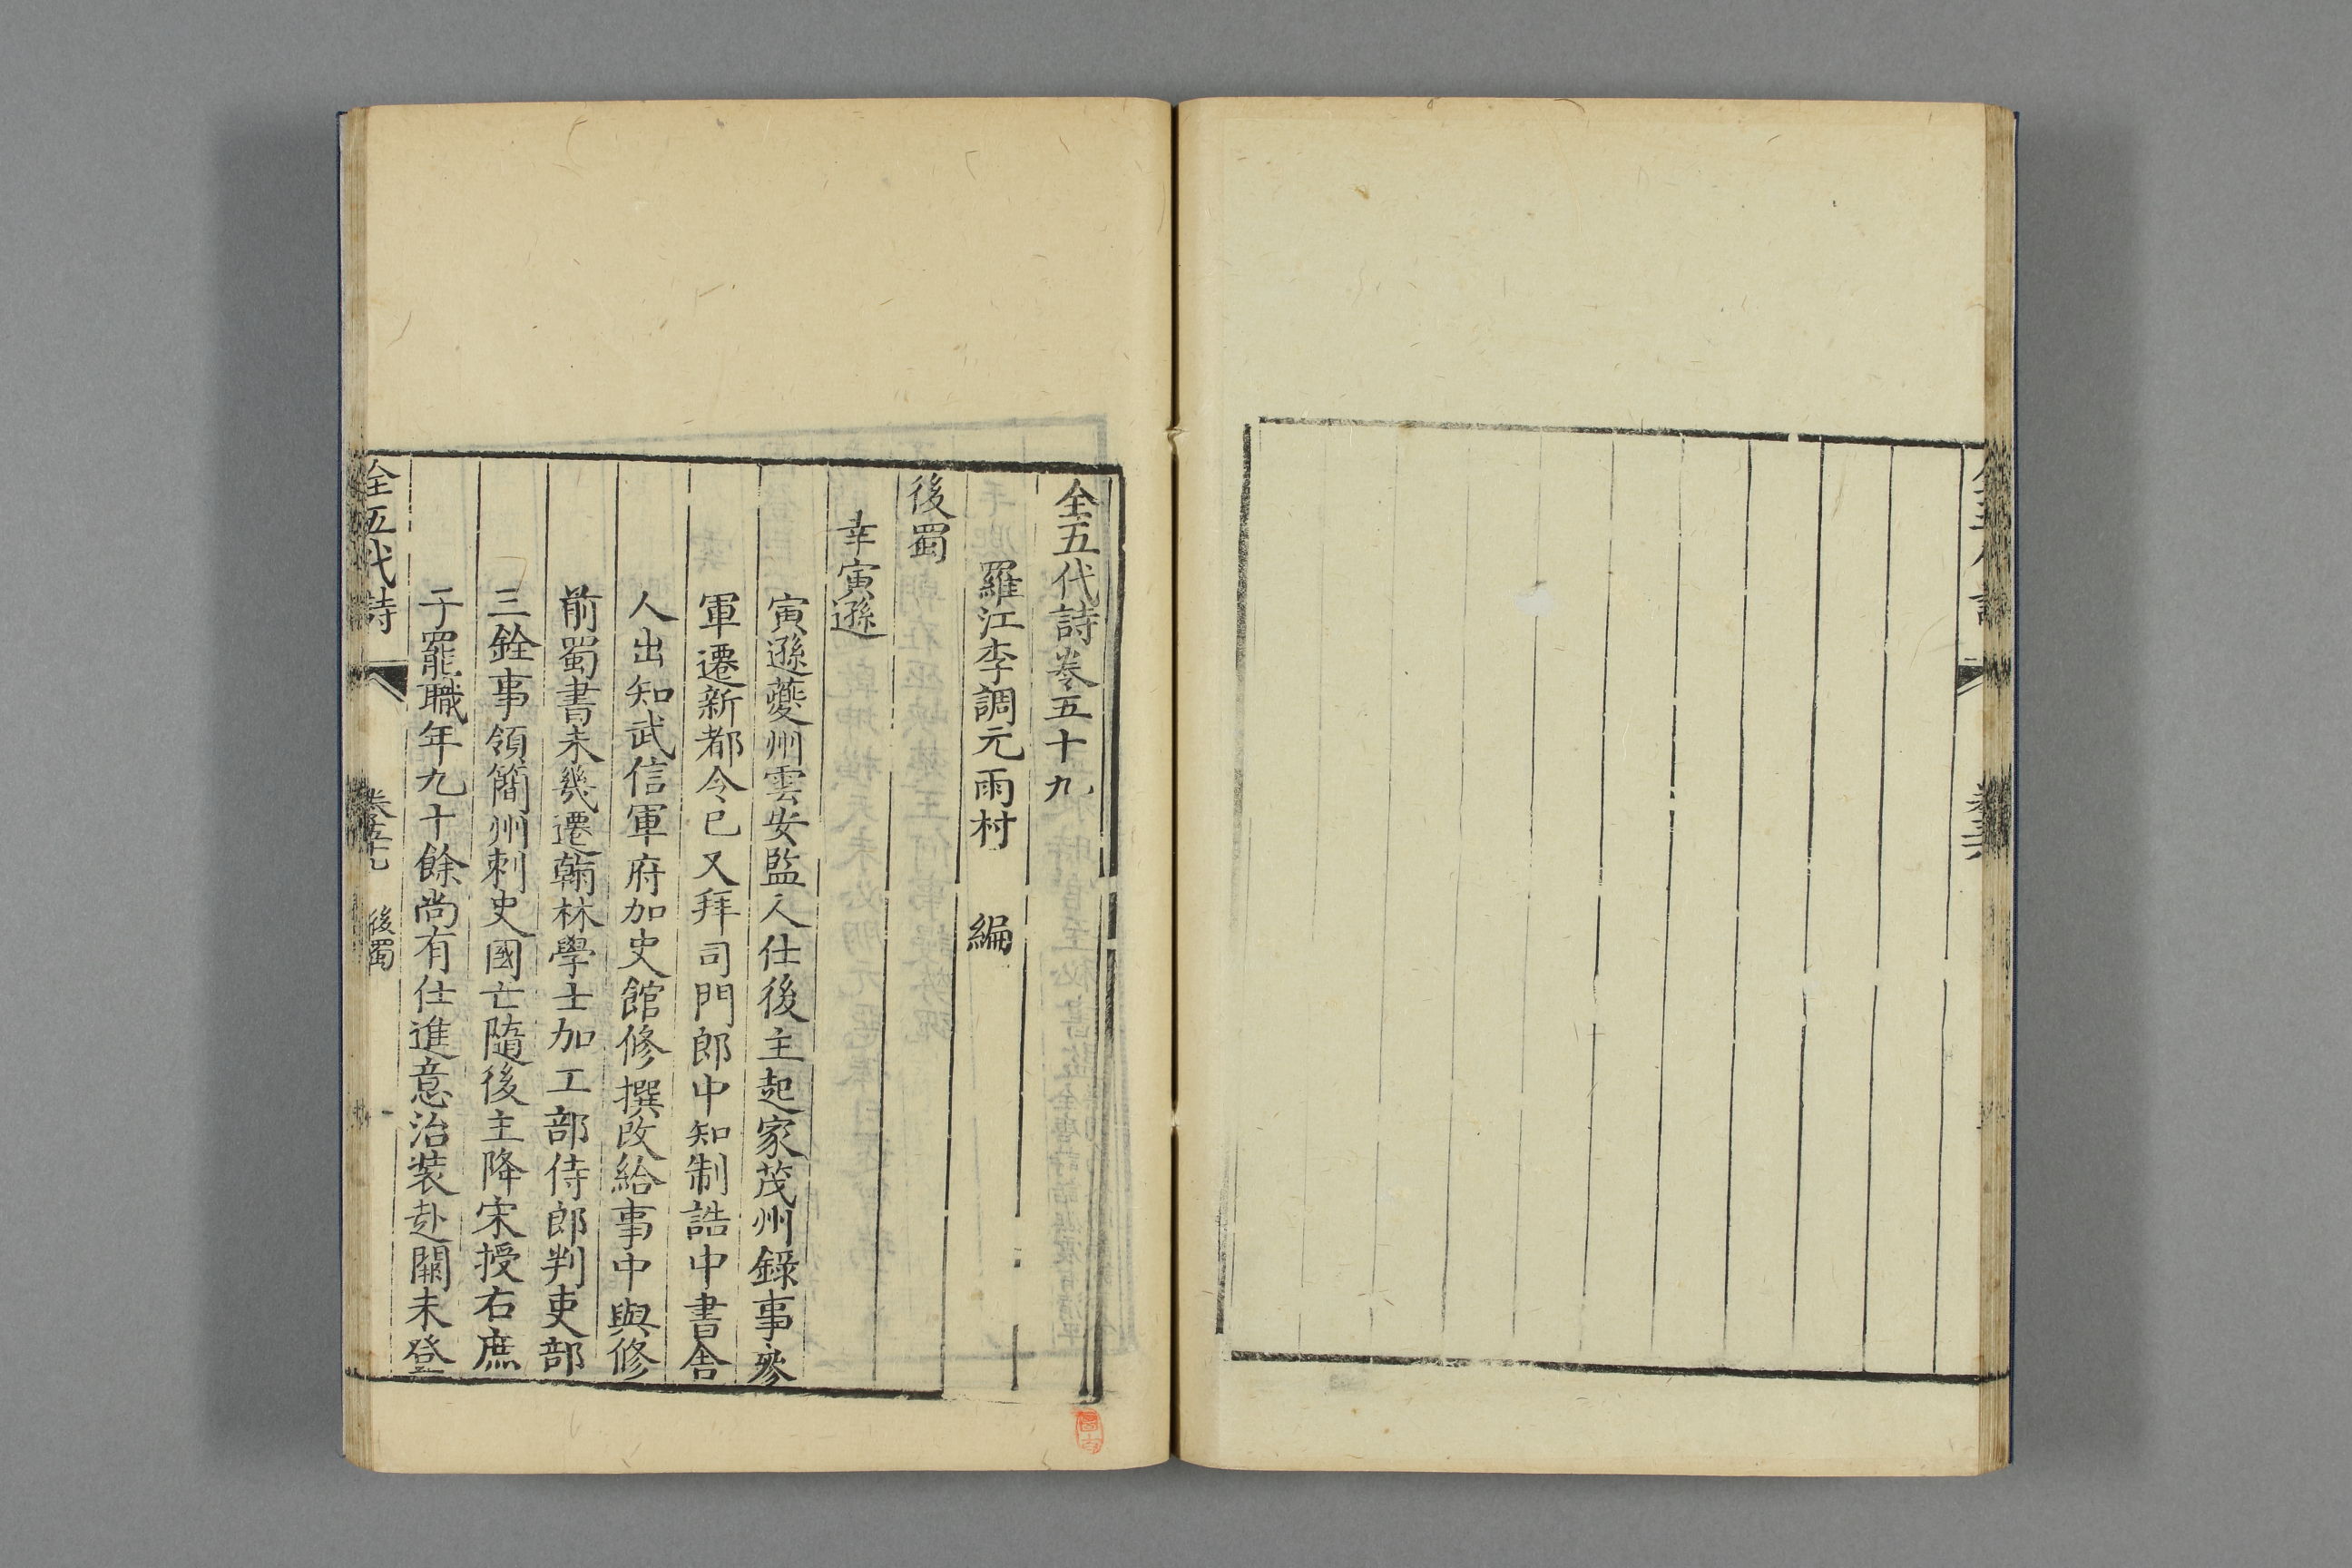 全五代詩
全五代詩卷五十九
羅江李調元雨村　編
後蜀
幸寅遜
寅遜夔州雲安監人仕後主起家茂州錄事參
軍遷新都令已又拜司門郎中知制誥中書舍
人出知武信軍府加史館修撰改給事中與修
前蜀書未幾遷翰林學士加工部侍郎判吏部
三銓事領簡州刺史國亡隨後主降宋授右庶
子罷職年九十餘尚有仕進意治裝赴闕未登
全五代詩　卷五十九　後蜀　一